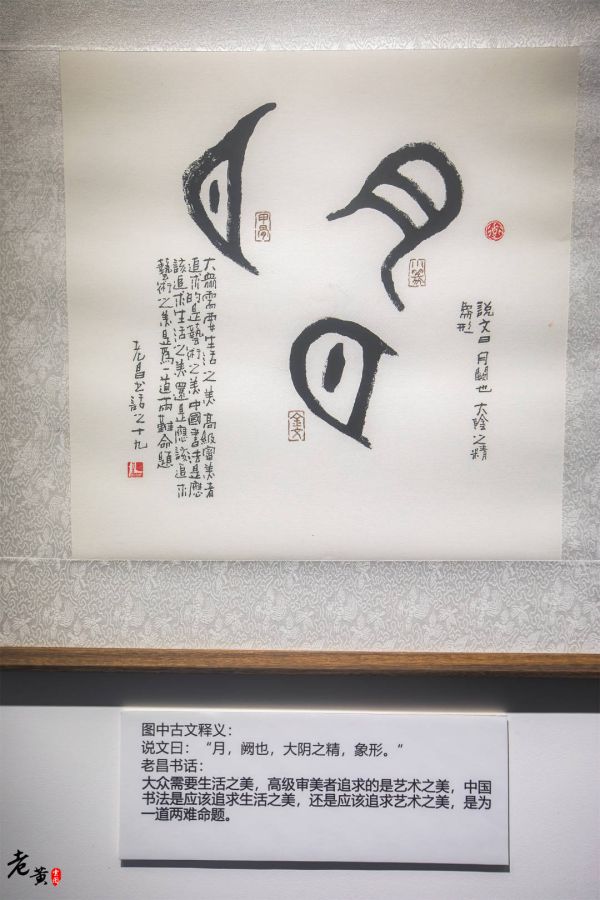 说文曰月闕也大陰之精
象形
月
小篆
月
甲骨
月
金文
大眾需要生活之美高級審美者
追求的是藝術之美中國書法是應
該追求生活之美還是應該追求
藝術之美是為一道兩難命題
老昌书話之十九
图中古文释义：
说文曰：“月，阙也，大阴之精，象形。“
老昌书话：
大众需要生活之美，高级审美者追求的是艺术之美，中国
书法是应该追求生活之美，还是应该追求艺术之美，是为
一道两难命题。
老黄